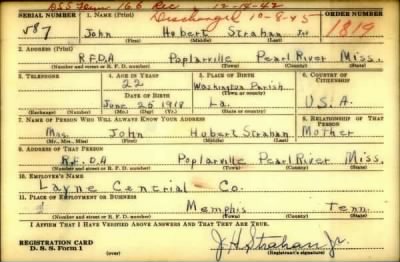 DSS Form 166 Rec 12-14-42
Discharged 10-8-45
SERIAL NUMBER 1. Name (Print) ORDER NUMBER
587 John Hobert Strahan Jr 1819
(First) (Middle) (Last)
2. Address (Print)
R.F.D.A Poplarville Pearl River Miss.
(Number and street or R. F. D. number) (Town) (County) (State)
3. Telephone 4. Age in Years 5. Place of Birth 6. Country of Citizenship
22 Washington Parish
Date of Birth (Town or county)
June 25 1918 La. U.S.A.
(Exchange) (Number) (Mo.) (Day) (Yr.) (State or country)
7. Name of Person Who Will Always Know Your Address 8. Relationship of That Person
Mrs. John Hobert Strahan Mother
(Mr., Mrs., Miss) (First) (Middle) (Last)
9. Address of That Person
R.F.D.A Poplarville Pearl River Miss.
(Number and street or R. F. D. number) (Town) (County) (State)
10. Employer's Name
Layne Central Co.
11. Place of Employment or Business
Memphis Tenn.
(Number and street or R. F. D. number) (Town) (County) (State)
I Affirm That I Have Verified Above Answers and That They Are True.
REGISTRATION CARD
D. S. S. Form 1 (over) J H Strahan Jr.
(Registrant's signature)